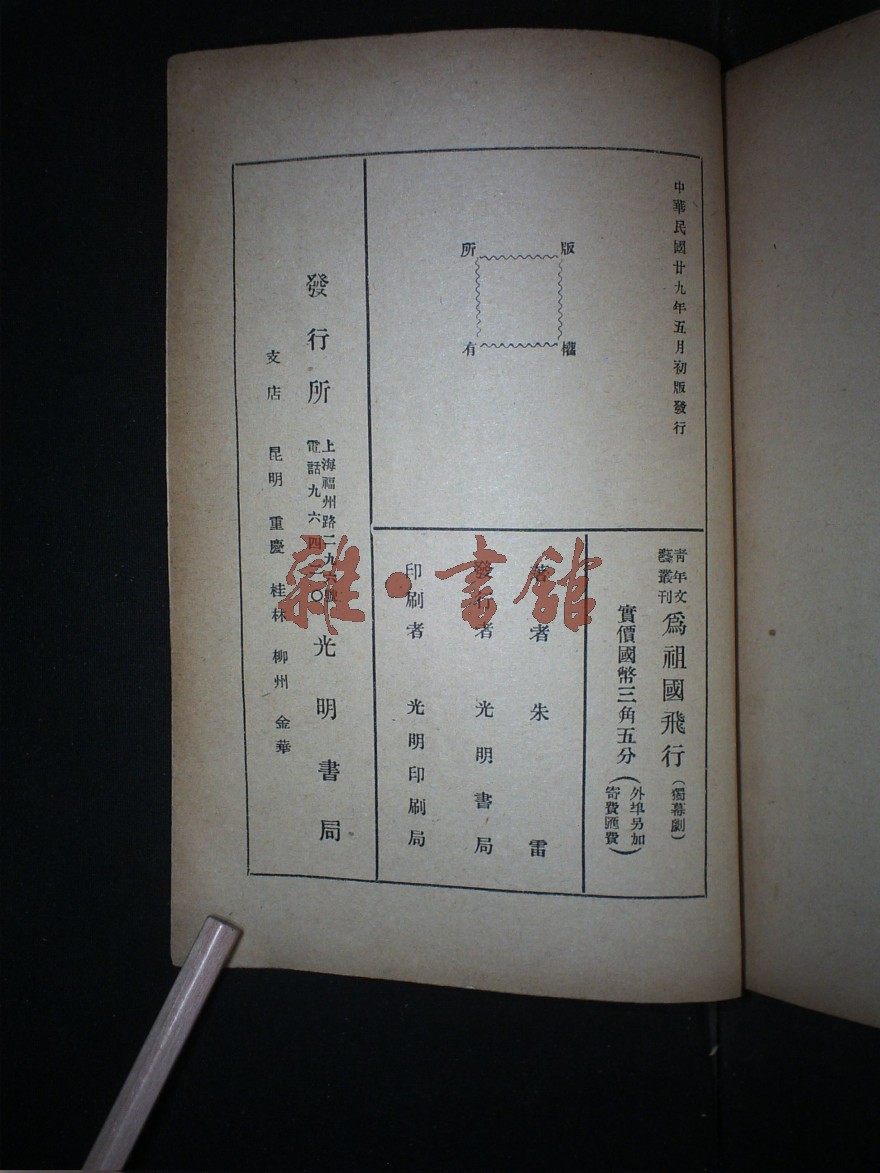 中華民國廿九年五月初版發行
版權所有
青年文
藝叢刊
爲祖國飛行
(獨幕劇)
實價國幣三角五分
(外埠另加
寄費匯費)
著者 朱雷
發行者 光明書局
印刷者 光明印刷局
發行所
上海福州路二九六號
電話九六四二〇
光明書局
支店 昆明 重慶 桂林 柳州 金華
雜·書館